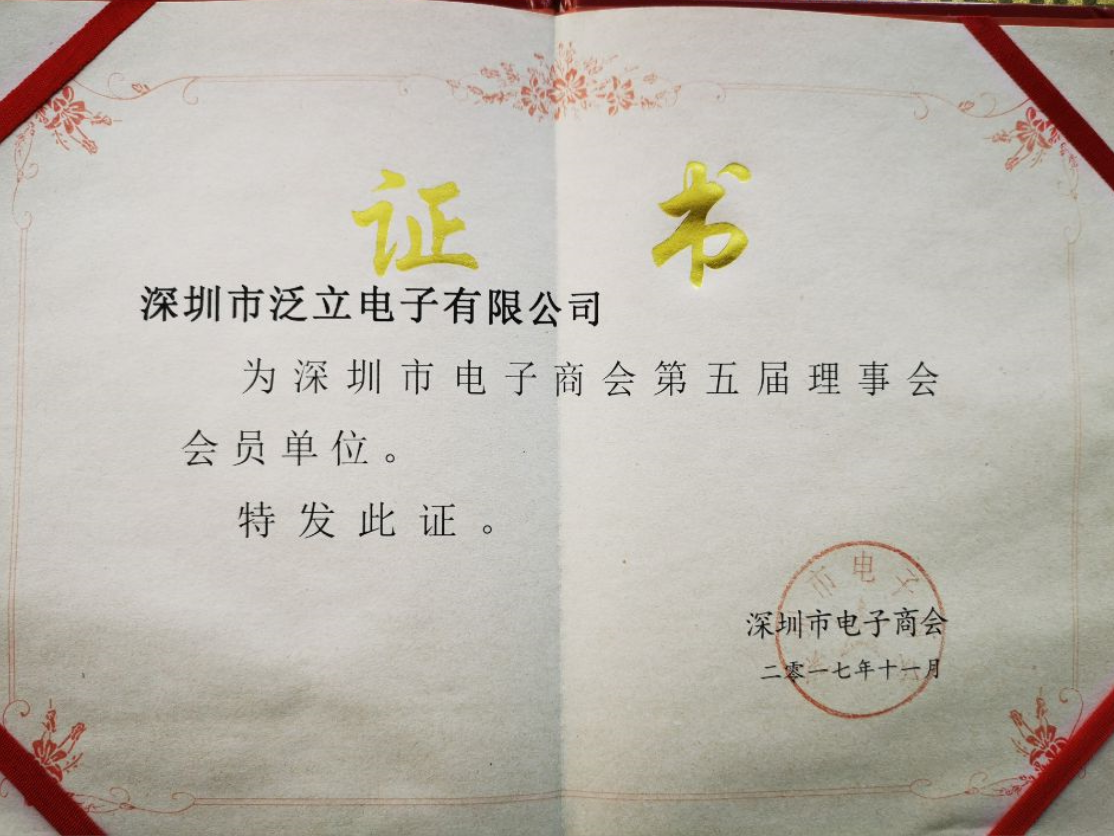 证书
深圳市泛立电子有限公司
为深圳市电子商会第五届理事会
会员单位。
特发此证。
市电子
深圳市电子商会
二零一七年十一月